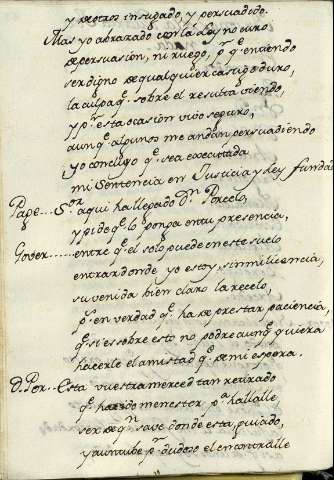 y de otros instigado, y persuadido.
Mas yo abrazado con la Ley no curo
de persuasión, ni ruego, p.r q.e entiendo
ser digno de qualquier castigo duro,
la culpa q.e sobre el resulta siendo,
y p.r esta ocasion vivo seguro,
aunq.e algunos me andan persuadiendo
yo concluyo q.e sea executada
mi Sentencia en Justicia y Ley fundada
Page S.or aqui ha llegado D.n Porcelo,
y pide q.e lo ponga en tu presencia,
Gover entre q.e el solo puede en este suelo
entrar donde yo estoy, sin mi licencia,
su venida bien claro la recelo,
p.r en verdad q.e ha de prestar paciencia,
q.e si es sobre esto no podre aunq.e quiera
hacerle el amistad q.e de mi espera.
D. Por. Esta vuestra merced tan retirado
q.e ha sido menester p.a hallalle
ser de q.n save donde esta, guiado,
y aun tube p.r dudoso el encontralle